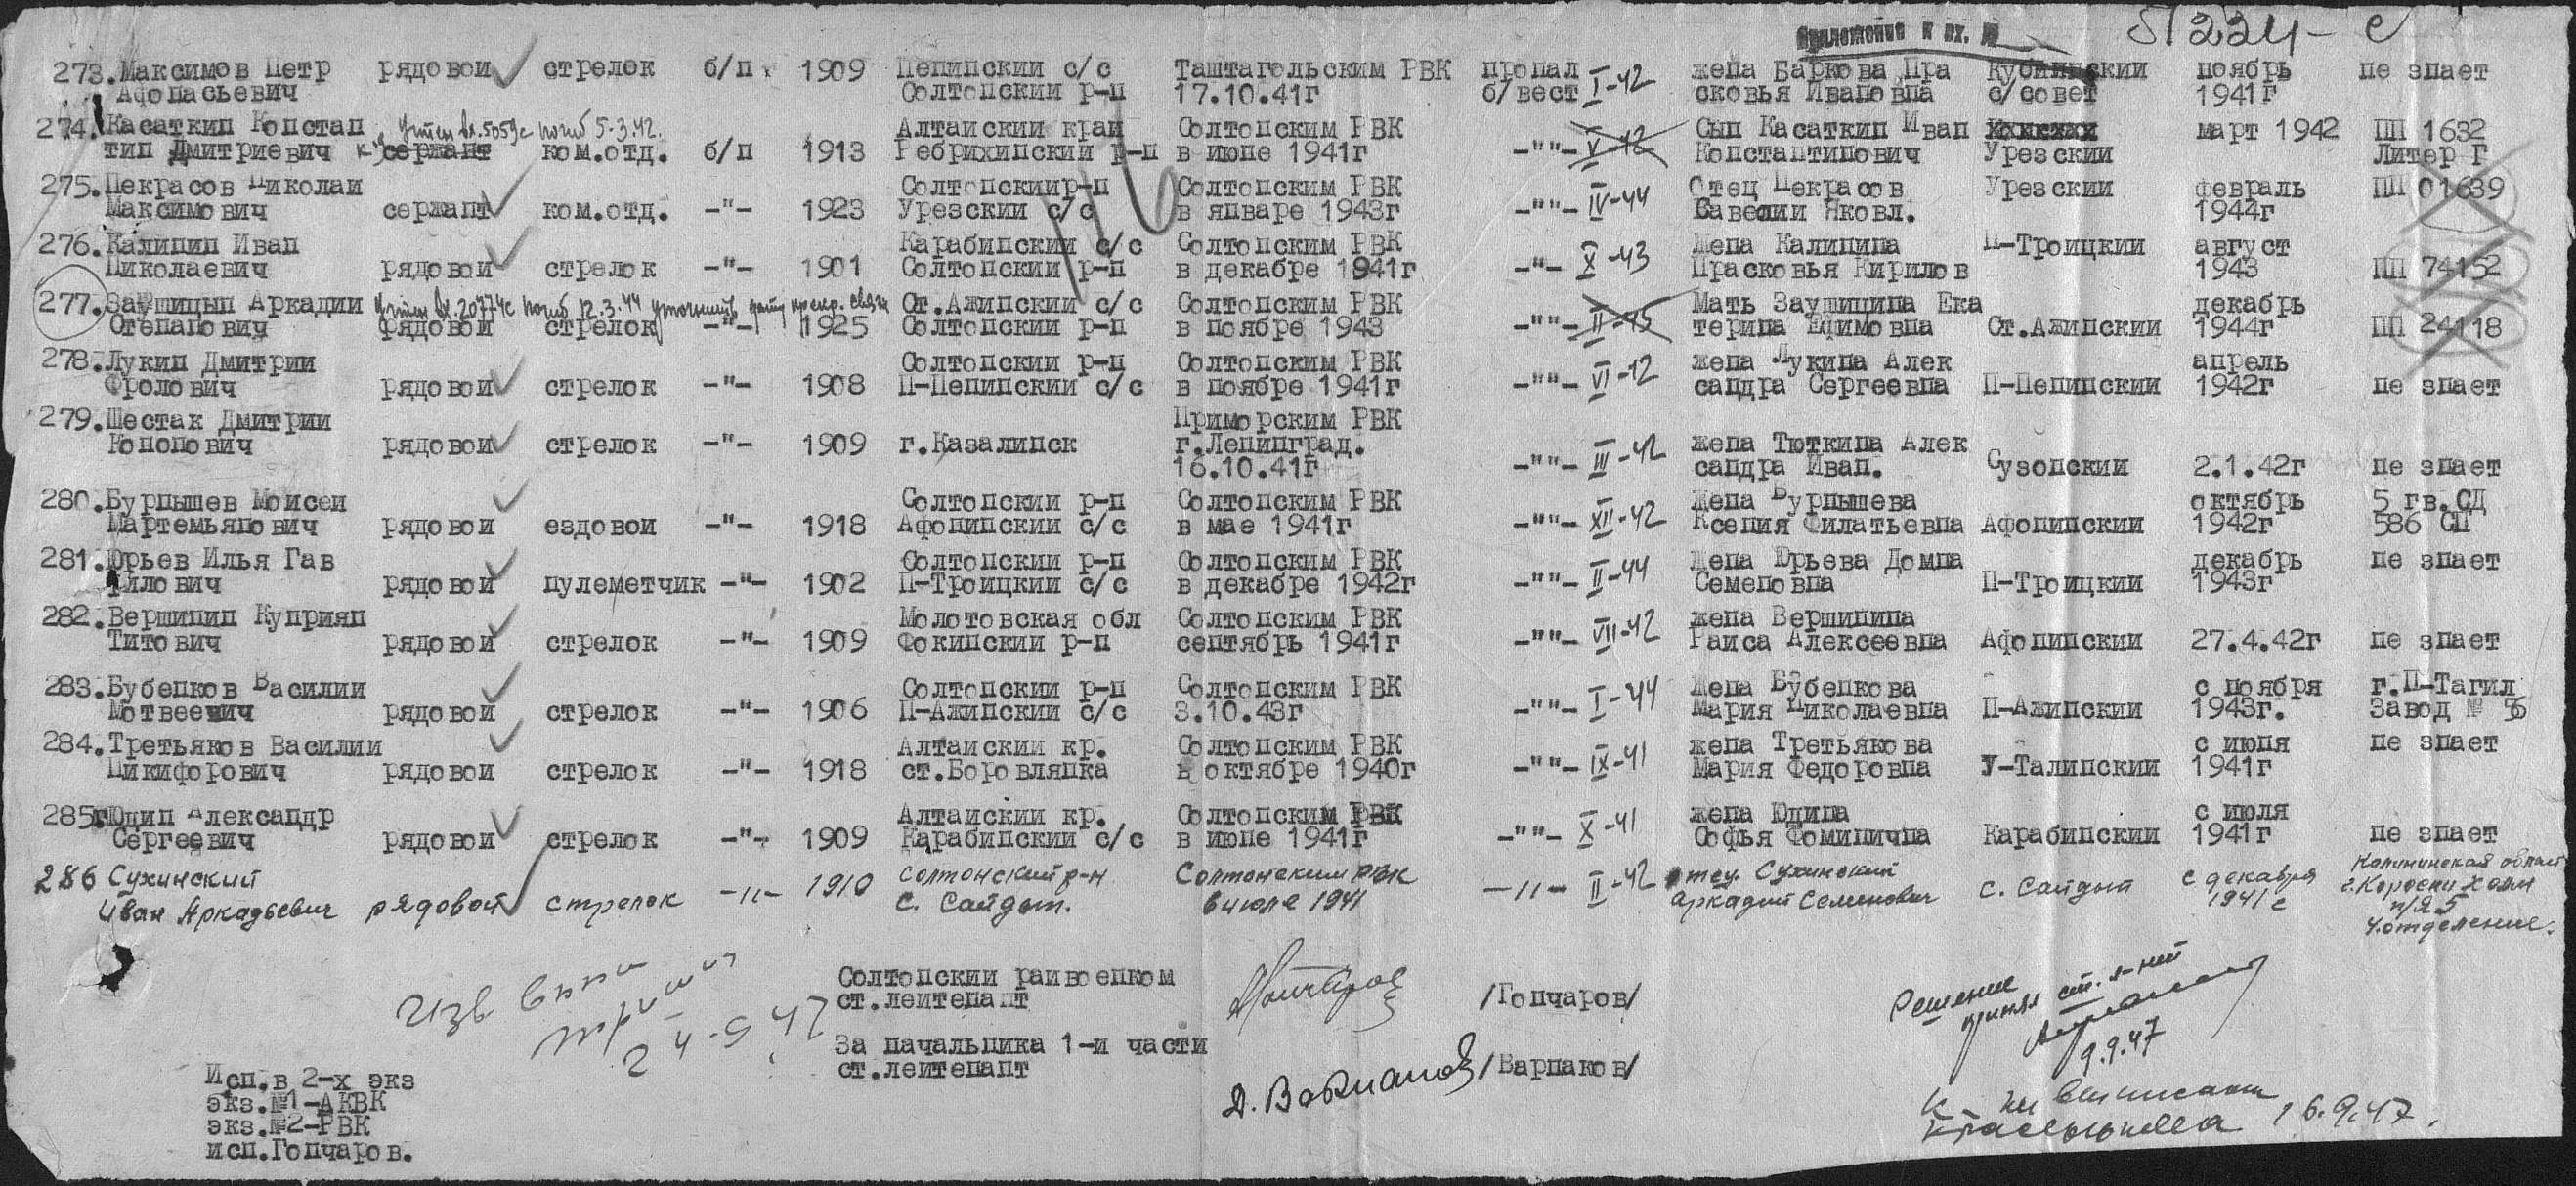 Приложение к вх. № 51224-с
273. Максимов Петр рядовой стрелок б/п 1909 Ненинский с/с Таштагольским РВК пропал I-42 жена Баркова Пра Кубинский ноябрь не знает
Афонасьевич Солтонский р-н 17.10.41г б/вест сковья Ивановна с/совет 1941г
274. Касаткин Констан учтен вх.5059с погиб 5.3.42. Алтайский край Солтонским РВК Сын Касаткин Иван март 1942 ПП 1632
тин Дмитриевич сержант ком.отд. б/п 1913 Ребрихинский р-н в июне 1941г -""- V-42 Константинович Урезский Литер Г
275. Некрасов Николай Солтонский р-н Солтонским РВК IV-44 Отец Некрасов Урезский февраль ПП 01639
Максимович сержант ком.отд. -"- 1923 Урезский с/с в январе 1943г -""- Савелий Яковл. 1944г
276. Калинин Иван Карабинский с/с Солтонским РВК X-43 Жена Калинина Н-Троицкий август
Николаевич рядовой стрелок -"- 1901 Солтонский р-н в декабре 1941г -"- Прасковья Кирилов 1943 ПП 74152
277. Заушицын Аркадий учтен вх.20774с погиб 12.3.44 уточнить дату прекр. связи Ст.Ажинский с/с Солтонским РВК Мать Заушицина Ека декабрь
Степанович рядовой стрелок -"- 1925 Солтонский р-н в ноябре 1943 -""- II-45 терина Ефимовна Ст.Ажинский 1944г ПП 24118
278. Лукин Дмитрий Солтонский р-н Солтонским РВК жена Лукина Алек апрель
Фролович рядовой стрелок -"- 1908 Н-Ненинский с/с в ноябре 1941г -""- VI-42 сандра Сергеевна Н-Ненинский 1942г не знает
279. Шестак Дмитрий Приморским РВК
Кононович рядовой стрелок -"- 1909 г.Казалинск г.Ленинград. жена Тюткина Алек
16.10.41г -""- III-42 сандра Иван. Сузопский 2.1.42г не знает
280. Бурнышев Моисей Солтонский р-н Солтонским РВК Жена Бурнышева октябрь 5 гв.СД
Мартемьянович рядовой ездовой -"- 1918 Афонинский с/с в мае 1941г -""- XII-42 Ксения Филатьевна Афонинский 1942г 586 СП
281. Юрьев Илья Гав Солтонский р-н Солтонским РВК Жена Юрьева Домна декабрь не знает
рилович рядовой пулеметчик -"- 1902 Н-Троицкий с/с в декабре 1942г -""- II-44 Семеновна Н-Троицкий 1943г
282. Вершинин Куприян Молотовская обл Солтонским РВК жена Вершинина
Титович рядовой стрелок -"- 1909 Фокинский р-н сентябрь 1941г -""- VII-42 Раиса Алексеевна Афонинский 27.4.42г не знает
283. Бубенков Василий Солтонский р-н Солтонским РВК Жена Бубенкова с ноября г.Н-Тагил
Мотвеевич рядовой стрелок -"- 1906 Н-Ажинский с/с 3.10.43г -""- I-44 Мария Николаевна Н-Ажинский 1943г. Завод № 56
284. Третьяков Василий Алтайский кр. Солтонским РВК жена Третьякова с июня не знает
Никифорович рядовой стрелок -"- 1918 ст.Боровлянка в октябре 1940г -""- IX-41 Мария Федоровна У-Талинский 1941г
285. Юдин Александр Алтайский кр. Солтонским РВК жена Юдина с июля
Сергеевич рядовой стрелок -"- 1909 Карабинский с/с в июне 1941г -""- X-41 Софья Фоминична Карабинский 1941г не знает
286 Сухинский рядовой стрелок -"- 1910 Солтонский р-н Солтонским РВК -"- II-42 отец Сухинский с. Сайдып с декабря Калининская област
Иван Аркадьевич с. Сайдып. в июле 1941 Аркадий Семенович 1941 г г. Каросени Холм
п/я 5
4 отделение.
Солтонский райвоенком
ст.лейтенант /Гончаров/
За начальника 1-й части
ст.лейтенант Д. Варнаков /Варнаков/
Изв
24.9.47
Решение
принял ст. л-нт
9.9.47
16.9.47.
Исп.в 2-х экз
экз.№1-АКВК
экз.№2-РВК
исп.Гончаров.